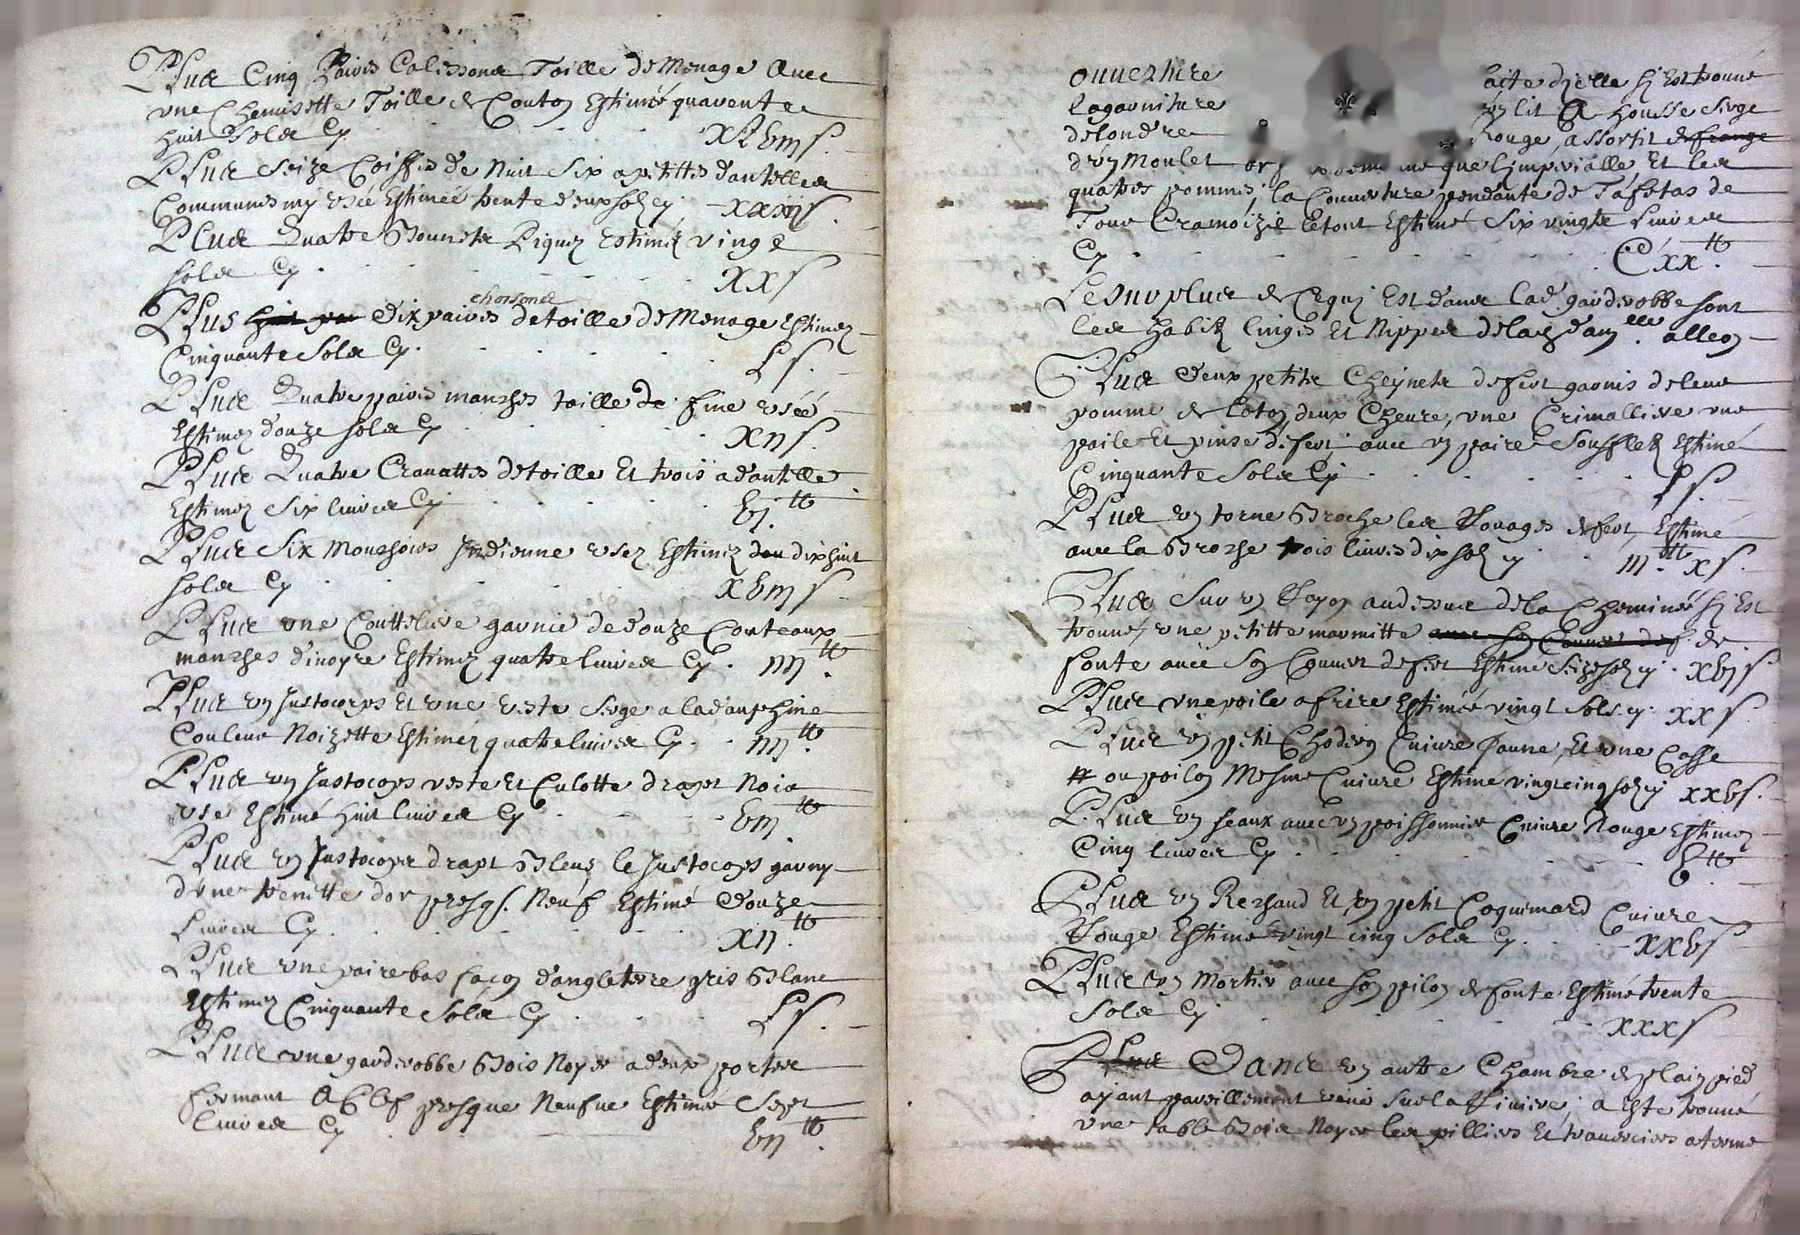 Plus Cinq Paires Calessons Toille de Menage Avec
une Chemisette Toille de Couton Estimée quarente
huit Sols Cy xLviij s.
Plus Seize Coiffes de Nuit Six apetittes dantelles
Communes my usée Estimée trente deux solz cy xxxij s.
Plus Quatre Bounets Piquez Estimez vingt
sols Cy xx s
chossons
Plus huit pai dix paires de toille de Menage Estimez
Cinquante Sols Cy. L s.
Plus Quatre paires manches toille de fine usée
Estimez douze sols Cy xij s.
Plus Quatre Crauattes de toille Et trois a dantelle
Estimez Six liures Cy vj. tt
Plus Six Mouchoirs Indienne usez Estimez dou dixhuit
sols Cy xviij s
Plus une Couttelière garnie de douze Couteaux
manches d'ivoyre Estimez quatre liures Cy. iiij tt.
Plus un Justocorps Et une veste Serge a la dauphine
Couleur Noizette Estimez quatre liures Cy. iiij tt.
Plus un Justocors veste Et Culotte drapt Noir
usé Estimé huit liures Cy viij tt.
Plus un Justocorps drapt Bleuf le Justocors garny
d'une trenette dor presq. Neuf Estimé douze
Liures Cy. xij. tt
Plus une paire bas façon d'angleterre gris Blanc
Estimez Cinquante Sols Cy L s.
Plus une garderobbe Bois Noyer a deux portes
fermant A Clef presque Neufue Estimée Sept
liures Cy vij tt.
ouuerture acte d'icelle s'y Est trouué
la garniture un lit A housse Serge
de londre rouge, assortit de frange
d'un Moulet que l'imperialle, Et les
quatres pommes, la Couuerture pendante de Tafetas de
Tour Cramoizie le tout Estimé Six vingts Liures
Cy Cxx. tt
Le Surplus de Cequy Est dans lad. garderobbe sont
les habits linges Et Nippes de lad dam.lle alleon
Plus deux petits Cheynets de fert garnis de leur
pomme de loton, deux Cheure, une Crimalliere une
paile Et pinse de fert, auec un paire Soufflets Estimé
Cinquante Sols Cy L s.
Plus un torne Broche les Rouages de fert, Estimé
auec la Broche trois liures dix solz cy iij. tt x s.
Plus Sur un Rayon audessus de la Cheminée s'y Est
trouuéz une petitte marmitte auec son Couuert de f de
fonte auec son Couuert de fert Estimé Seize solz cy. xvj s
Plus une poile a frire Estimée vingt Sols cy xx s
Plus un petit Choderon Cuiure Jaune, Et une Casse
# ou poilon Mesme Cuiure Estimé vingt cinq solz cy xxv s.
Plus un seaux auec un poissonnier Cuiure Rouge Estimez
Cinq liures Cy v tt.
Plus un Rechaud Et un petit Coquemard Cuiure
Rouge Estimé vingt cinq Sols Cy. xxv s
Plus un Mortier auec son pilon de fonte Estimé trente
Sols Cy xxx s
Plus Dans un autre Chambre de plain pied
ajant pareillement veue Sur la Riuiere, a esté trouué
une table Bois Noyer les pilliers Et trauerciers a torné